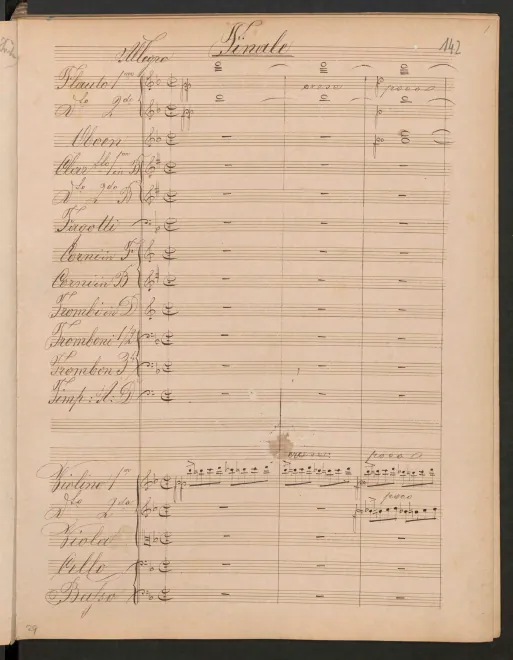 Finale
142
Allegro
Flauto 1mo
do 2do
cresc
poco a
Oboen
Clar 1mo in B
do 2do B
Fagotti
Corni in F
Corni in B
Trombi in D
Tromboni 1/2
Trombon 3
Timp: A: D
poco a
Violino 1mo
do 2do
poco
Viola
Cello
Basso
29